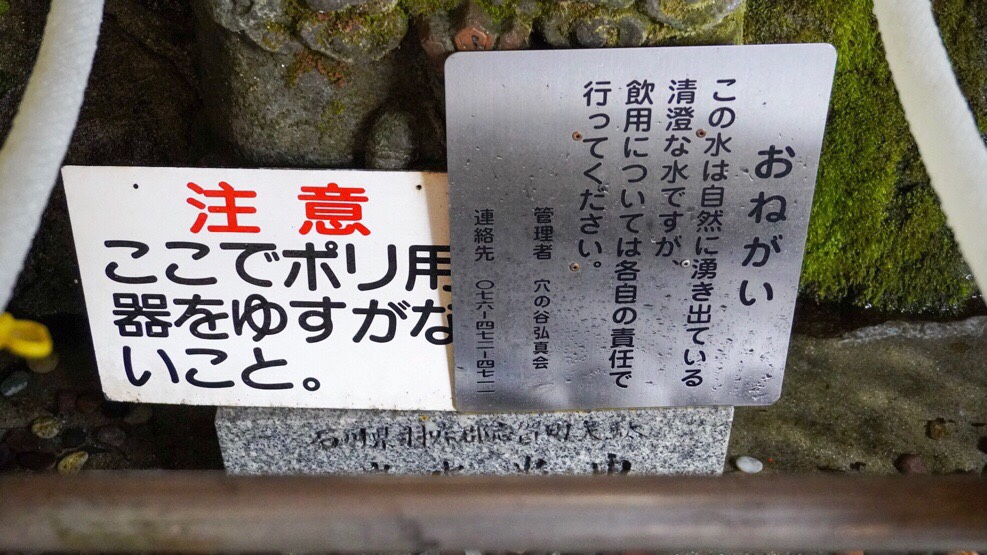 注意
ここでポリ用
器をゆすがな
いこと。
おねがい
この水は自然に湧き出ている
清澄な水ですが、
飲用については各自の責任で
行ってください。
管理者 穴の谷弘真会
連絡先 〇七六-四七二-四七一一